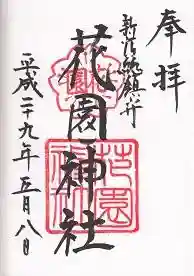 奉拝
新宿総鎮守
花園神社
平成二十九年五月八日